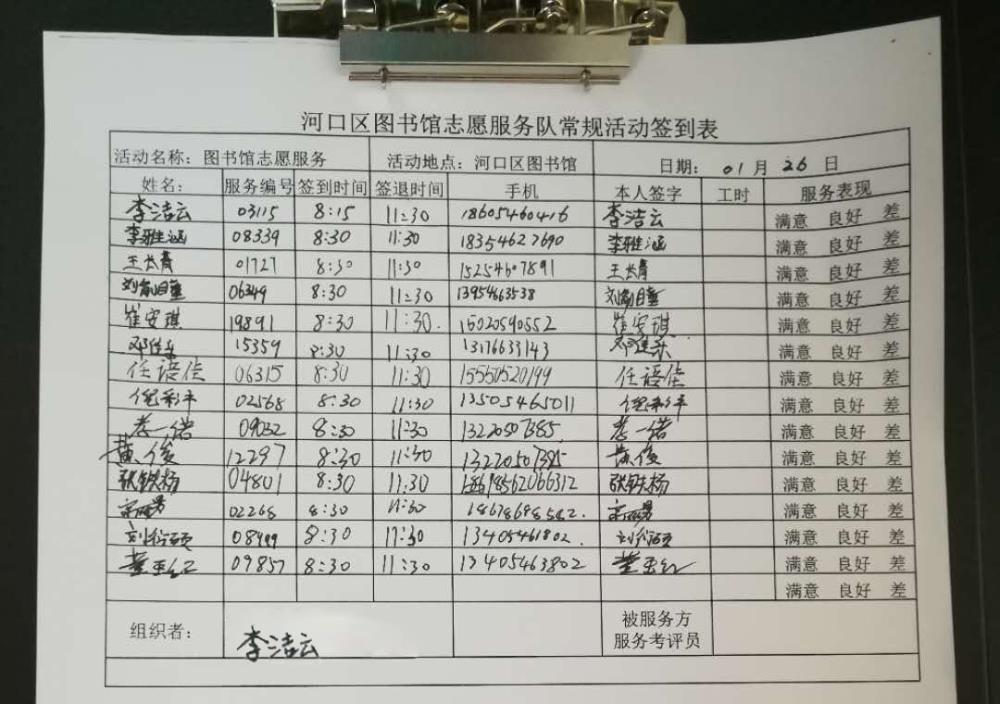 河口区图书馆志愿服务队常规活动签到表
活动名称：图书馆志愿服务 活动地点：河口区图书馆 日期：01月26日
姓名： 服务编号 签到时间 签退时间 手机 本人签字 工时 服务表现
李洁云 03115 8:15 11:30 18605460416 李洁云 满意 良好 差
李雅涵 08339 8:30 11:30 18354627690 李雅涵 满意 良好 差
王长青 01727 8:30 11:30 15254607891 王长青 满意 良好 差
06349 8:30 11:30 13954663538 满意 良好 差
崔安琪 19891 8:30 11:30 15020590552 崔安琪 满意 良好 差
15359 8:30 11:30 13176633143 满意 良好 差
任语佳 06315 8:30 11:30 15550520199 任语佳 满意 良好 差
倪彩平 02568 8:30 11:30 13505465011 倪彩平 满意 良好 差
09032 8:30 11:30 13220507385 满意 良好 差
黄俊 12297 8:30 11:30 13220507385 黄俊 满意 良好 差
张铁杨 04801 8:30 11:30 张铁杨 满意 良好 差
02268 8:30 11:30 满意 良好 差
8:30 11:30 13405461802 满意 良好 差
董玉红 09857 8:30 11:30 13405463802 董玉红 满意 良好 差
满意 良好 差
组织者： 李洁云 被服务方
服务考评员